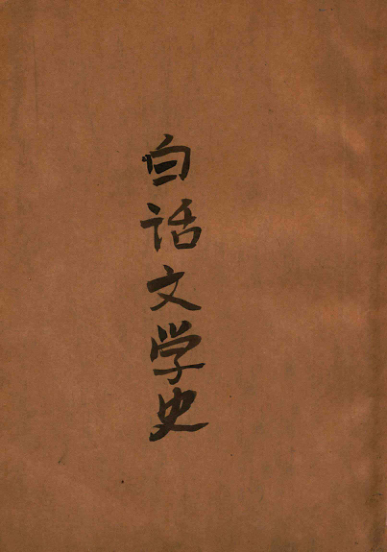 白话文学史